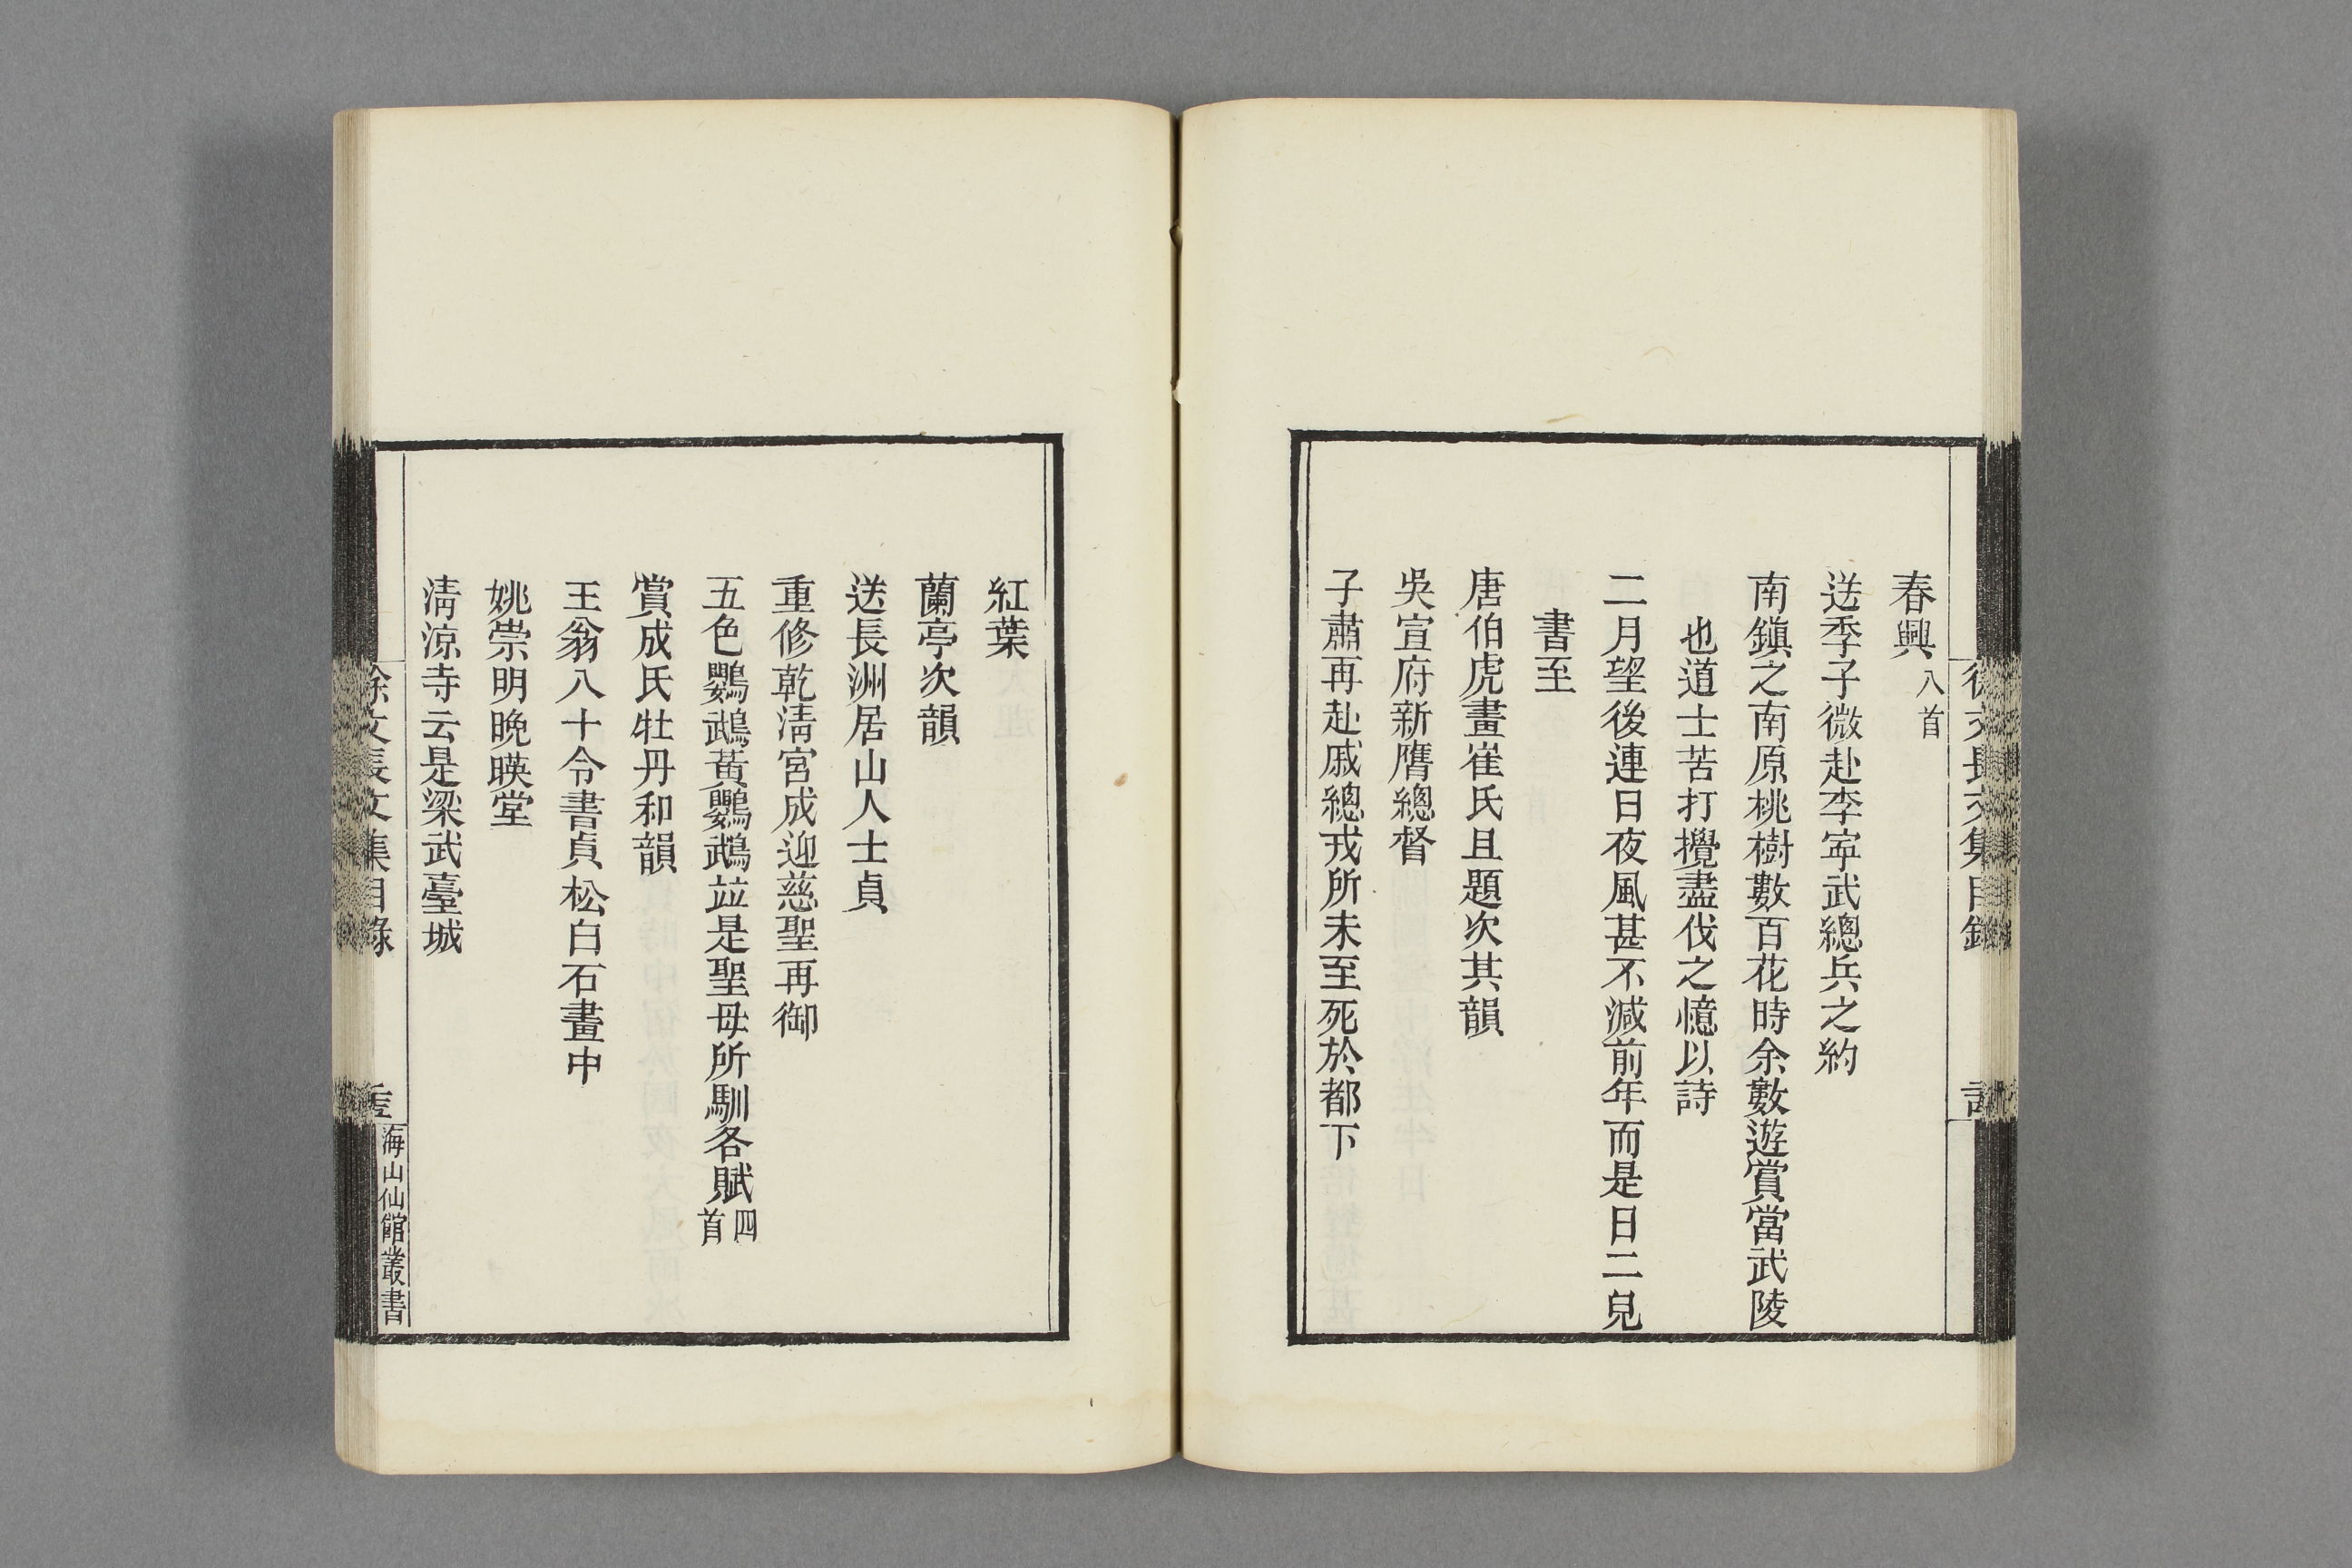 春興八首
送季子微赴李寧武總兵之約
南鎮之南原桃樹數百花時余數遊賞當武陵
也道士苦打攪盡伐之憶以詩
二月望後連日夜風甚不減前年而是日二兒
書至
唐伯虎畫崔氏且題次其韻
吳宣府新膺總督
子肅再赴戚總戎所未至死於都下
紅葉
蘭亭次韻
送長洲居山人士貞
重修乾淸宮成迎慈聖再御
五色鸚鵡黃鸚鵡竝是聖母所馴各賦四首
賞成氏牡丹和韻
王翁八十令書貞松白石畫中
姚崇明晩暎堂
淸涼寺云是梁武臺城
徐文長文集目錄
海山仙館叢書